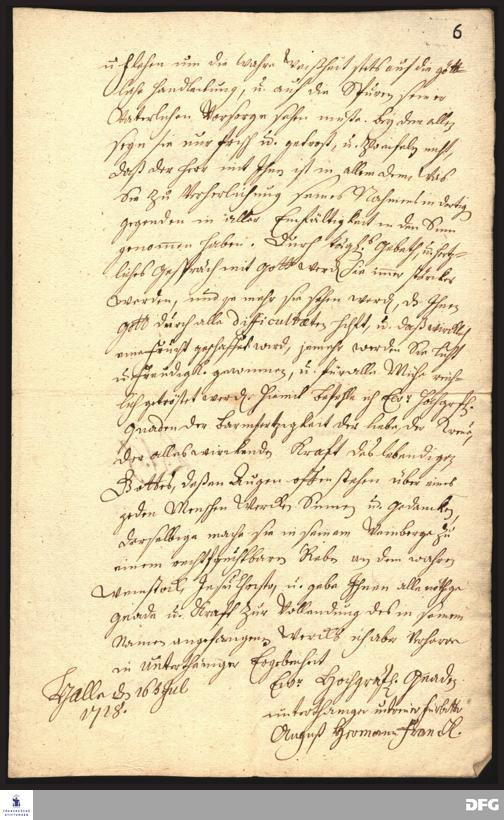 6
u. flehen um die wahre Weißheit stets auf die gött-
liche Handleitung, u. auf die Spuren seiner
Väterlichen Vorsorge sehen müste. Bey dem allen
seyn sie nur frisch u. getrost, u. zweifeln nicht,
daß der Herr mit Ihnen ist in allem dem, was
Sie zu Verherlichung seines Nahmens in dortigen
gegenden in aller Einfältigkeit in den Sinn
genommen haben. Durch Gebeth, u. hertz-
liches Gespräch mit Gott werden sie immer stärcker
werden, und je mehr sie sehen werden, daß Ihnen
Gott durch alle difficultæten hilfft, u. daß würckl.
eine Frucht geschaffet wird, jemehr werden Sie Lust
u. Freudigk. gewinnen, u. für alle Mühe reich-
lich getröstet werden. Hiemit befehle ich Ew. Hochgräfl.
Gnaden der Barmhertzigkeit der Liebe, der
der alles wirckenden Krafft des lebendigen
Gottes, deßen Augen offen stehen über eines
jeden Menschen Wercke, Sinnen u. Gedancken,
derselbige mache sie in seinem Weinberge zu
einem recht fruchtbaren Reben an dem wahren
Weinstock, Jesu Christo, u. gebe Ihnen alle nöthige
Gnade u. Krafft zur Vollendung des in seinem
Namen angefangenen Wercks, ich aber verharre
in Unterthäniger Ergebenheit
Halle d. 16 Jul
1718.
Ew. Hochgräfl. Gnaden
unterthäniger u. treuer Fürbitter
August Hermann Franck.
FRANCKESCHE
STIFTUNGEN
DFG